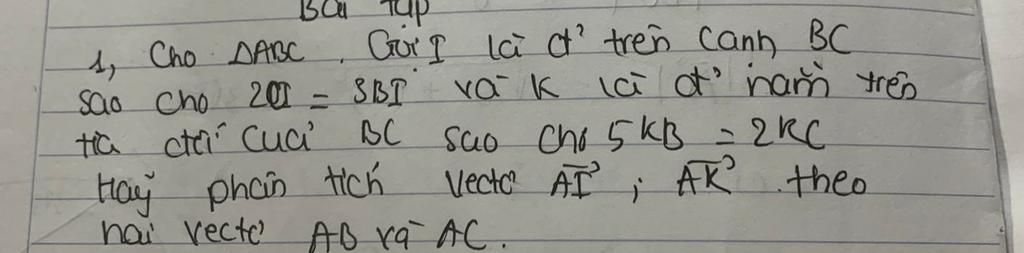 Bài tập
1, Cho ΔABC. Gọi I là đ' trên cạnh BC
sao cho 2CI = 3BI và K là đ' nằm trên
tia đối của BC sao cho 5KB = 2KC
Hãy phân tích vectơ AI→ ; AK→ theo
hai vectơ AB và AC.